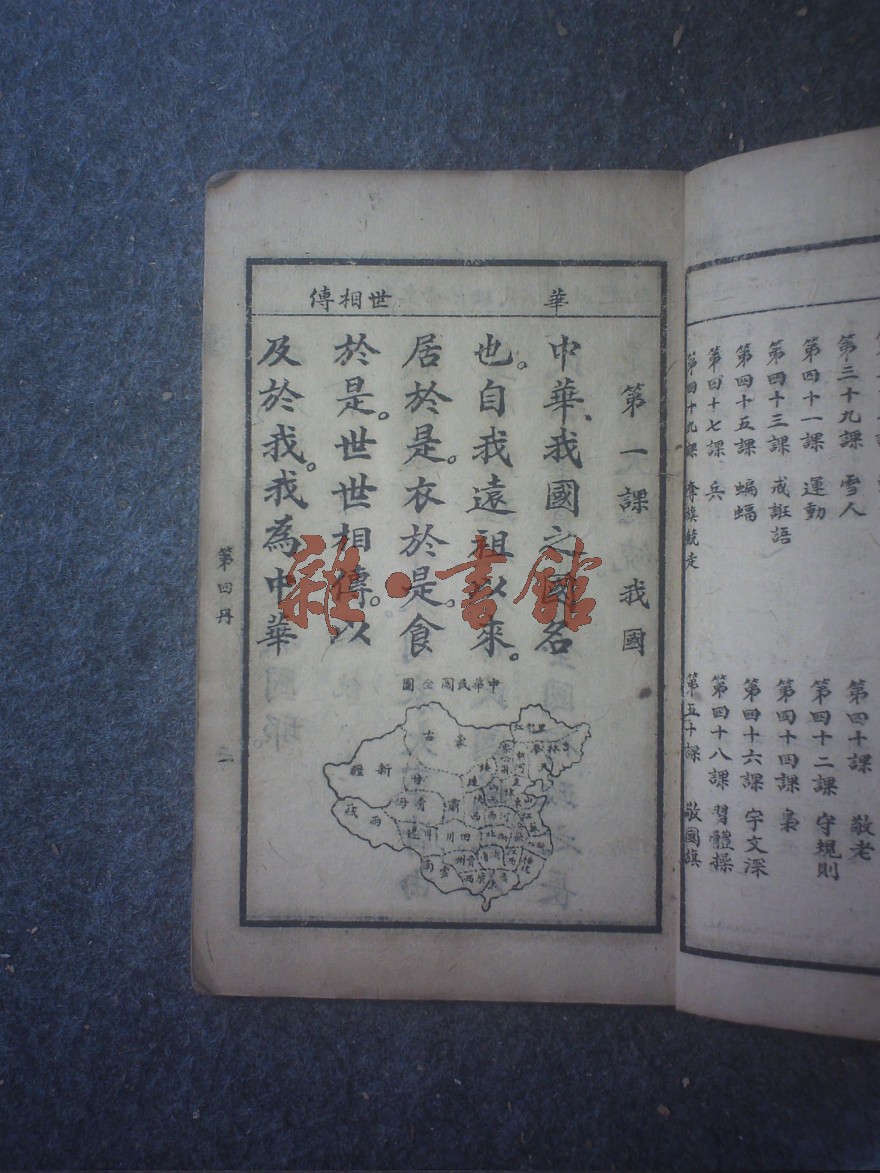 第三十九課 雪人
第四十課 敬老
第四十一課 運動
第四十二課 守規則
第四十三課 戒誑語
第四十四課 梟
第四十五課 蝙蝠
第四十六課 宇文深
第四十七課 兵
第四十八課 習體操
第四十九課 奪旗競走
第五十課 敬國旗
華 世相傳
第一課 我國
中華、我國之國名
也。自我遠祖以來。
居於是。衣於是。食
於是。世世相傳。以
及於我。我為中華
中華民國全圖
黑龍江
吉林
蒙古
新疆
甘
肅
青海
西藏
川邊
四川
陝西
山西
河
山東
貴州
雲南
廣西
廣東
第四冊
二
雜·書館